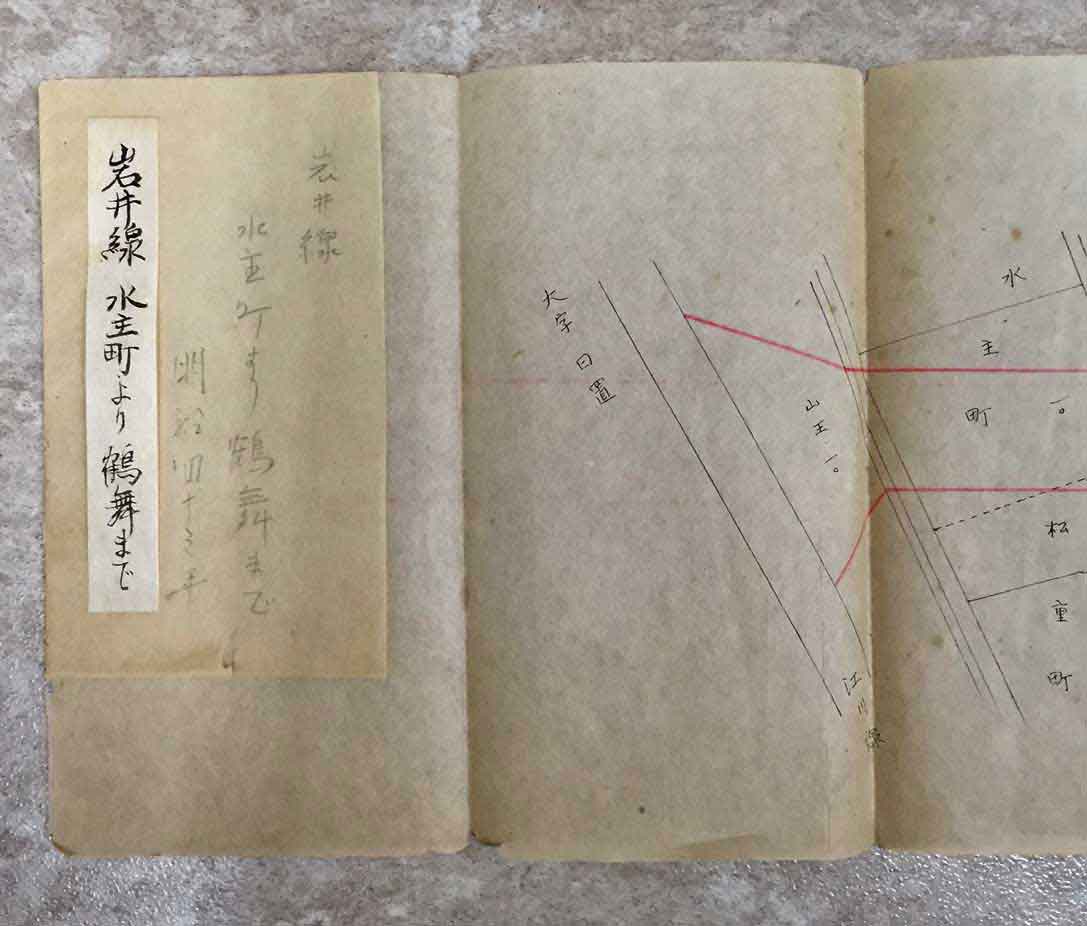 岩井線 水主町より鶴舞まで
岩井線
水主町より鶴舞まで
明治四十三年
大字日置
山王一。
江川線
水主町
一。
松重町